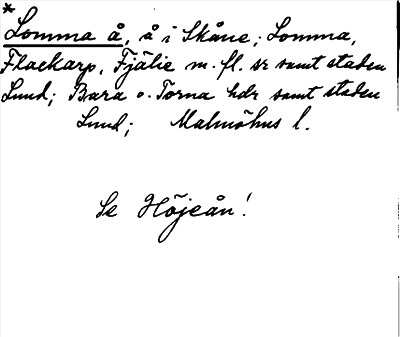 *
Lomma å, å i Skåne; Lomma,
Flackarp, Fjälie m. fl. sr samt staden
Lund; Bara o. Torna hdr samt staden
Lund; Malmöhus l.
Se Höjeån!